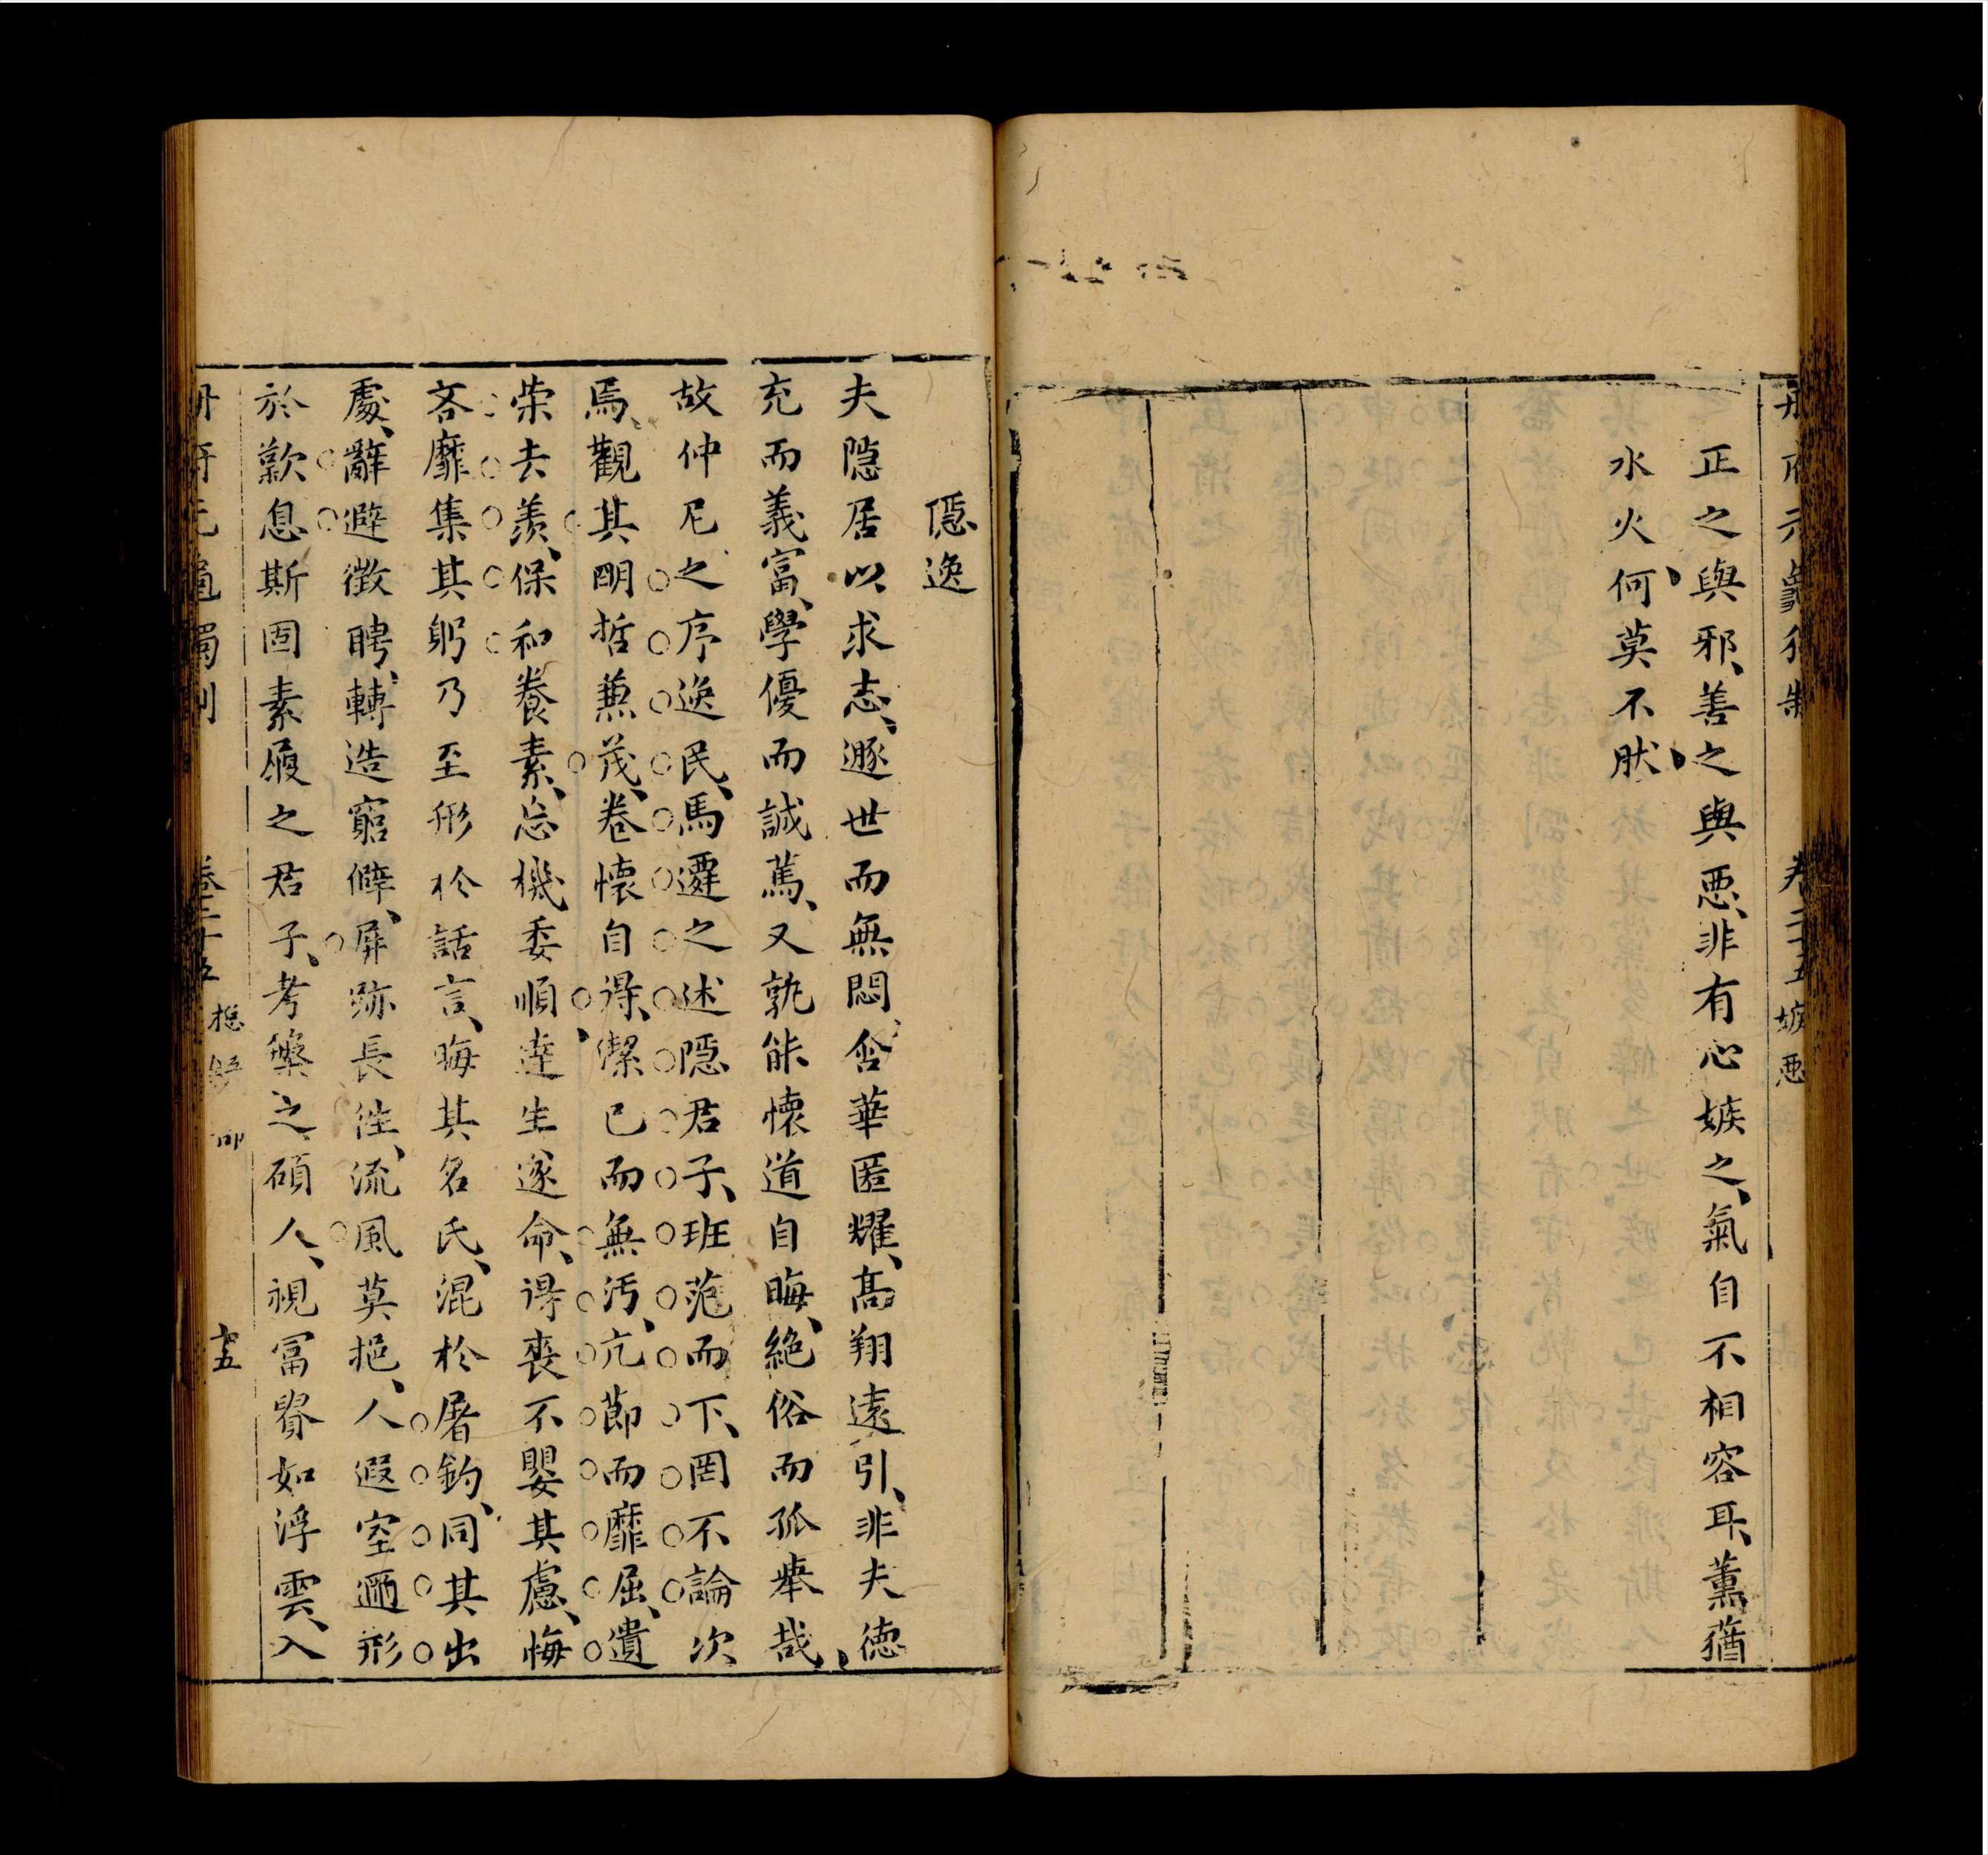 正之與邪、善之與惡、非有心嫉之、氣自不相容耳、薰蕕
水火、何莫不肰、
隱逸
夫隱居以求志、遯世而無悶、含華匿耀、高翔遠引、非夫德
充而義富、學優而誠篤、又孰能懷道自晦、絕俗而孤舉哉、
故仲尼之序逸民、馬遷之述隱君子、班范而下、罔不論次
焉、觀其明哲兼茂、卷懷自得、潔已而無汚、亢節而靡屈、遺
榮去羨、保和養素、忘機委順、達生遂命、得喪不嬰其慮、悔
吝靡集其躬乃至形於話言、晦其名氏、混於屠釣、同其出
處、辭避徵聘、轉造窮僻、屏跡長往、流風莫挹、人遐室邇形
於歎息斯固素履之君子、考槃之碩人、視冨貴如浮雲、入
卷二十五 嫉惡
卷二十五
十五